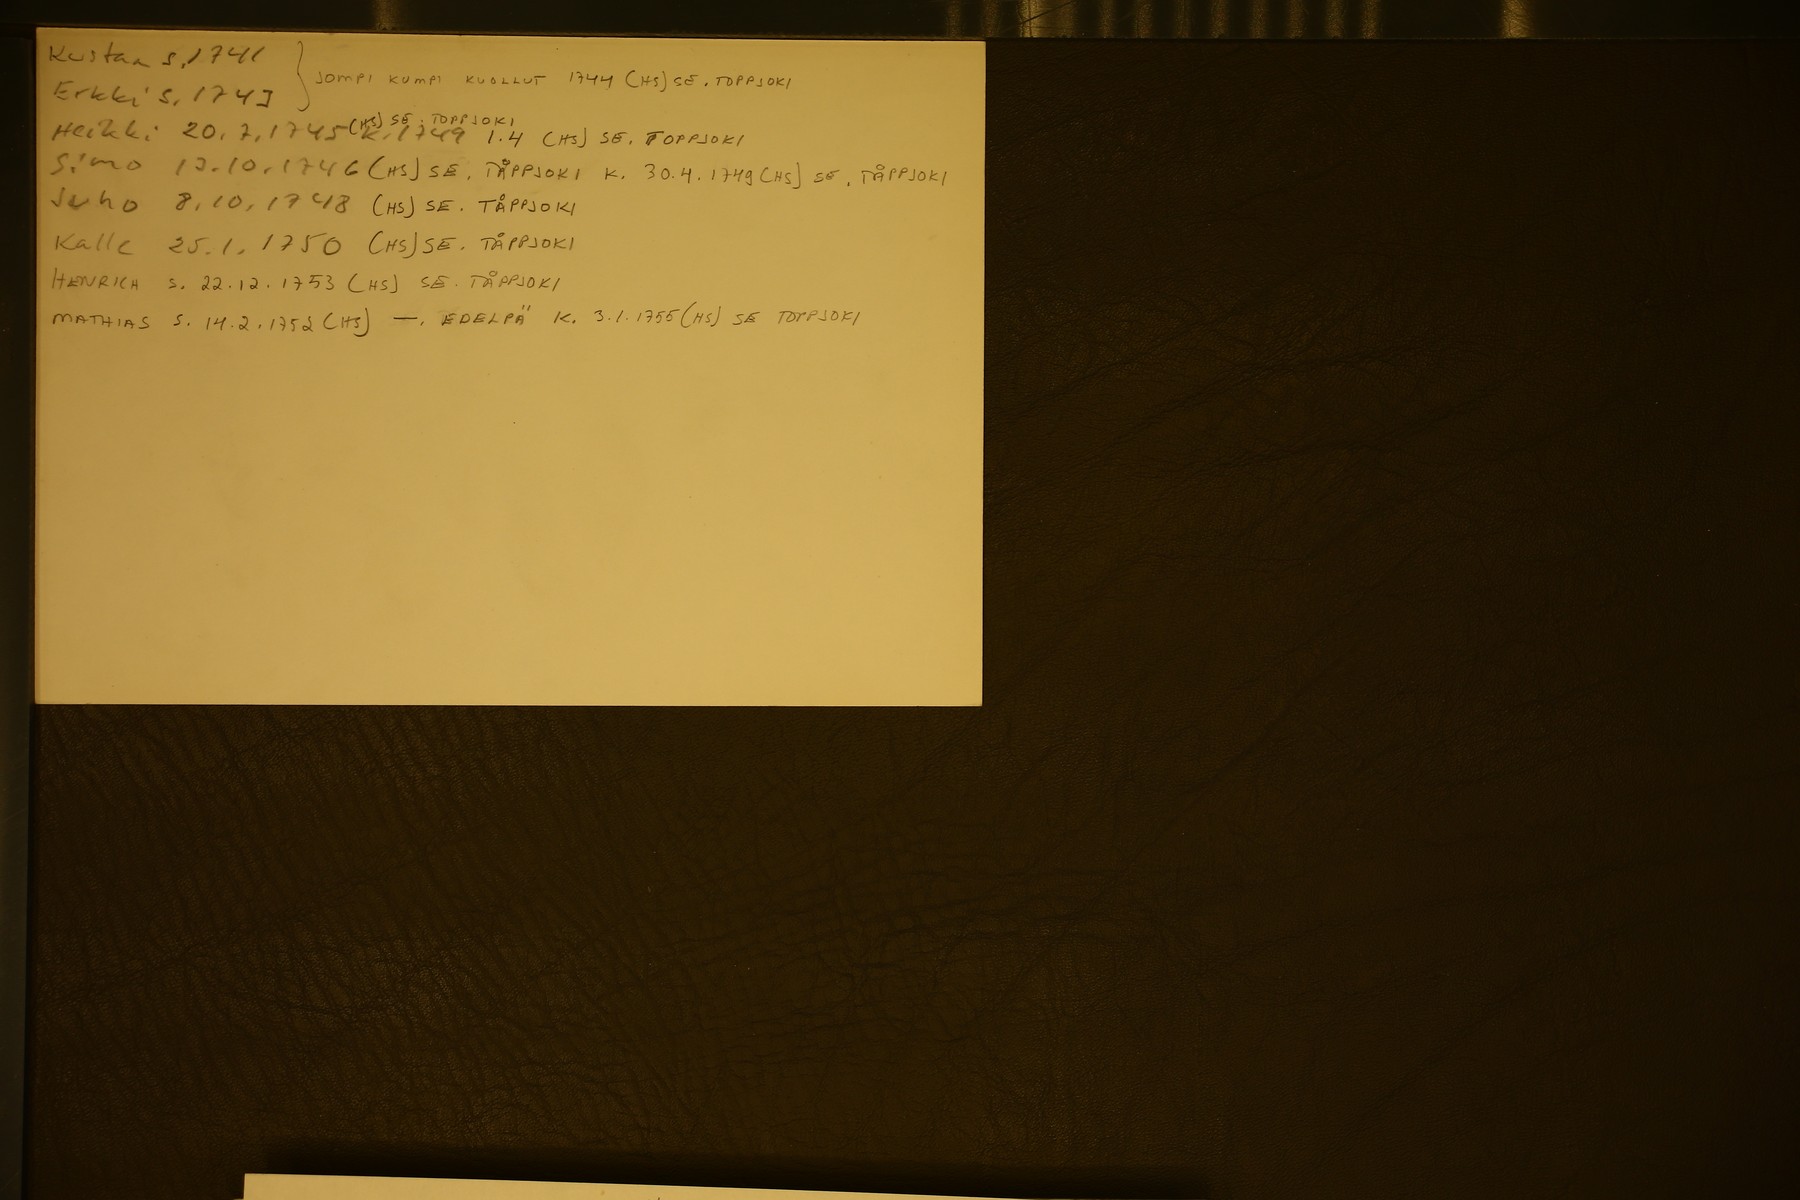 Kustaa s. 1741
Erkki s. 1743
} JOMPI KUMPI KUOLLUT 1744 (HS) SE. TOPPJOKI
(HS) SE. TOPPJOKI
Heikki 20.7.1745 k. 1749 1.4 (HS) SE. TOPPJOKI
Simo 13.10.1746 (HS) SE. TÅPPJOKI K. 30.4.1749 (HS) SE. TÅPPJOKI
Juho 8.10.1748 (HS) SE. TÅPPJOKI
Kalle 25.1.1750 (HS) SE. TÅPPJOKI
HENRICH S. 22.12.1753 (HS) SE. TÅPPJOKI
MATHIAS S. 14.2.1752 (HS) —. EDELPÄ K. 3.1.1755 (HS) SE TOPPJOKI